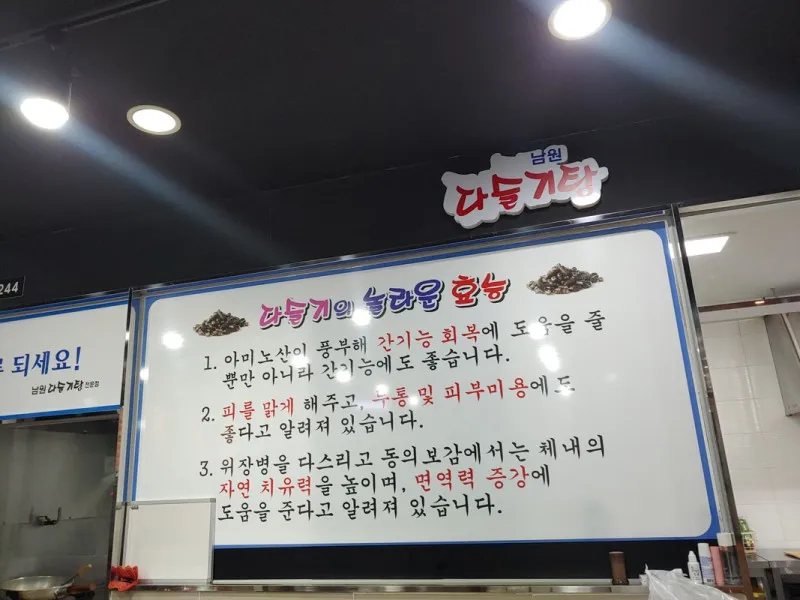 남원
다슬기탕
244
되세요!
남원 다슬기탕 전문점
다슬기의 놀라운 효능
1. 아미노산이 풍부해 간기능 회복에 도움을 줄
뿐만 아니라 간기능에도 좋습니다.
2. 피를 맑게 해주고, 두통 및 피부미용에도
좋다고 알려져 있습니다.
3. 위장병을 다스리고 동의보감에서는 체내의
자연 치유력을 높이며, 면역력 증강에
도움을 준다고 알려져 있습니다.